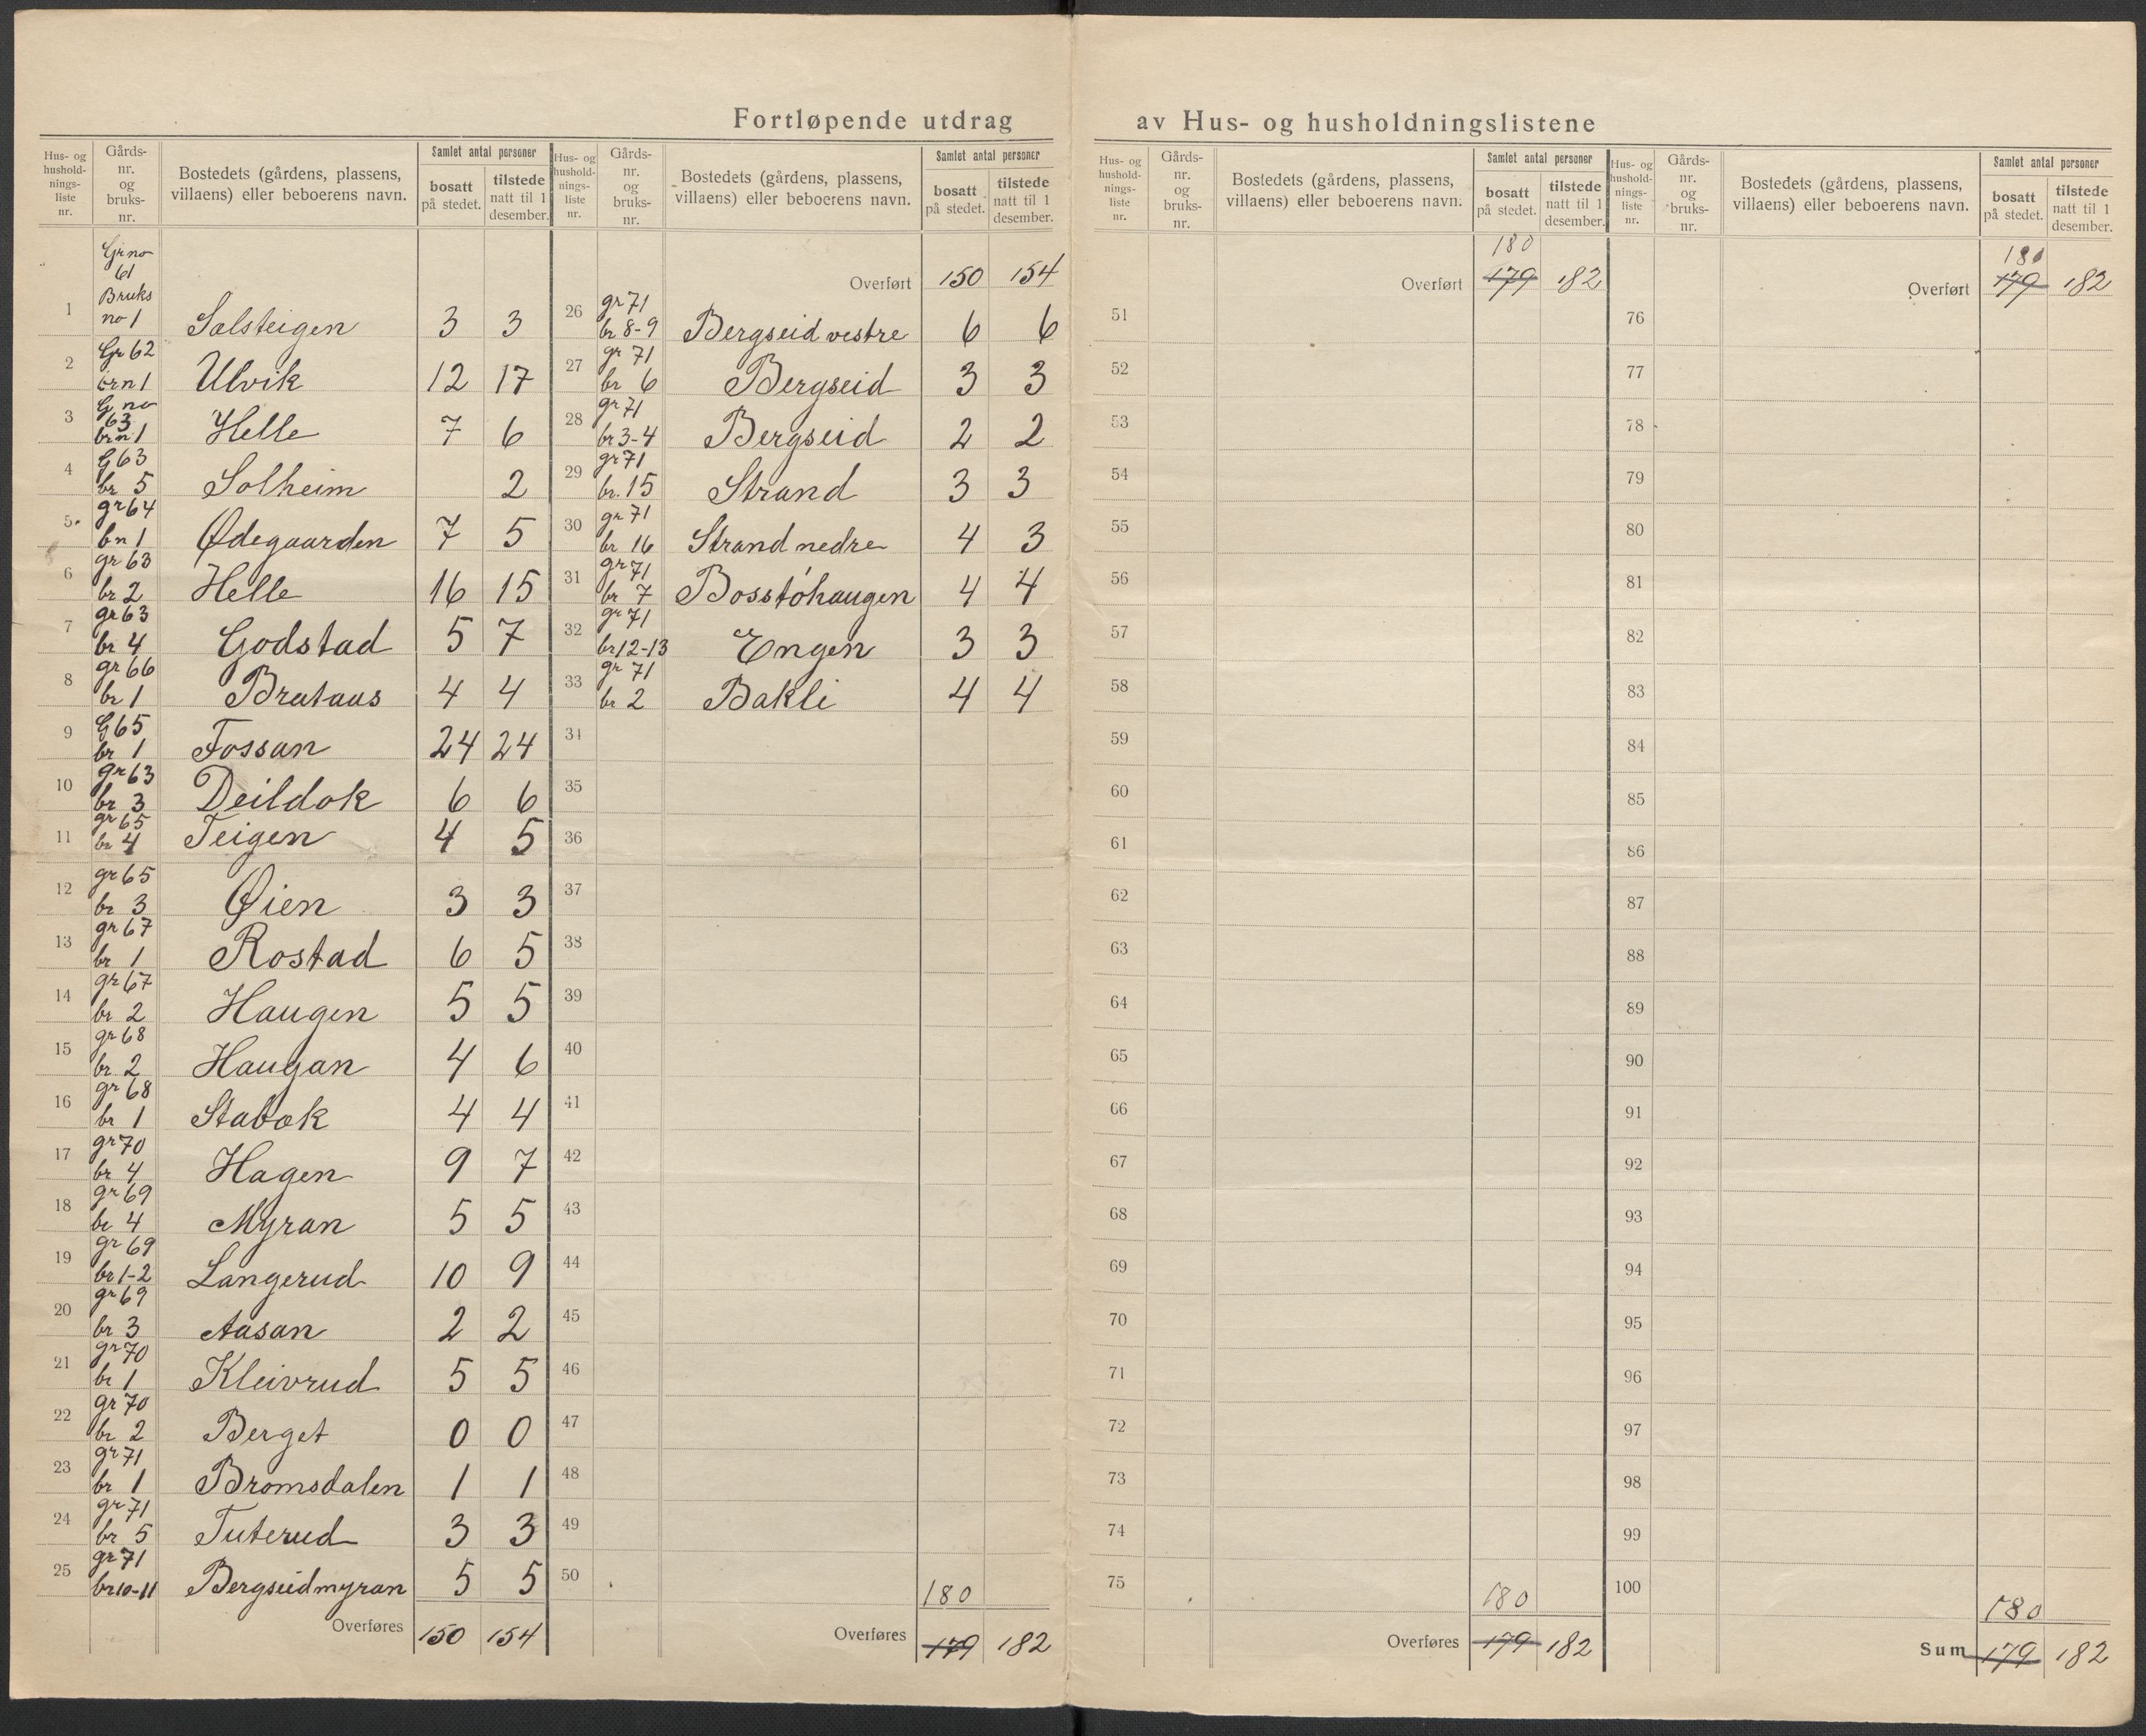 Fortløpende utdrag av Hus- og husholdningslistene
Hus- og hushold-nings-liste nr. | Gårds-nr. og bruks-nr. | Bostedets (gårdens, plassens, villaens) eller beboerens navn. | Samlet antal personer | bosatt på stedet. | tilstede natt til 1 desember.
1 | Gr no 61 Bruks no 1 | Solsteigen | 3 | 3
2 | Gr 62 brn 1 | Ulvik | 12 | 17
3 | G no 63 brn 1 | Helle | 7 | 6
4 | G 63 br 5 | Solheim | | 2
5. | gr 64 bn 1 | Ødegaarden | 7 | 5
6 | gr 63 br 2 | Helle | 16 | 15
7 | gr 63 br 4 | Godstad | 5 | 7
8 | gr 66 br 1 | Brataas | 4 | 4
9 | G 65 br 1 | Fossan | 24 | 24
10 | gr 63 br 3 | Deildok | 6 | 6
11 | gr 65 br 4 | Teigen | 4 | 5
12 | gr 65 br 3 | Øien | 3 | 3
13 | gr 67 br 1 | Rostad | 6 | 5
14 | gr 67 br 2 | Haugen | 5 | 5
15 | gr 68 br 2 | Haugan | 4 | 6
16 | gr 68 br 1 | Stabok | 4 | 4
17 | gr 70 br 4 | Hagen | 9 | 7
18 | gr 69 br 4 | Myran | 5 | 5
19 | gr 69 br 1-2 | Langerud | 10 | 9
20 | gr 69 br 3 | Aasan | 2 | 2
21 | gr 70 br 1 | Kleivrud | 5 | 5
22 | gr 70 br 2 | Berget | 0 | 0
23 | gr 71 br 1 | Bromsdalen | 1 | 1
24 | gr 71 br 5 | Tuterud | 3 | 3
25 | gr 71 br 10-11 | Bergseidmyran | 5 | 5
Overføres 150 154
Hus- og hushold-nings-liste nr. | Gårds-nr. og bruks-nr. | Bostedets (gårdens, plassens, villaens) eller beboerens navn. | Samlet antal personer | bosatt på stedet. | tilstede natt til 1 desember.
Overført 150 154
26 | gr 71 br 8-9 | Bergseid vestre | 6 | 6
27 | gr 71 br 6 | Bergseid | 3 | 3
28 | gr 71 br 3-4 | Bergseid | 2 | 2
29 | gr 71 br. 15 | Strand | 3 | 3
30 | gr 71 br 16 | Strand nedre | 4 | 3
31 | gr 71 br 7 | Bosstóhaugen | 4 | 4
32 | gr 71 br 12-13 | Engen | 3 | 3
33 | gr 71 br 2 | Bakli | 4 | 4
34
35
36
37
38
39
40
41
42
43
44
45
46
47
48
49
50
180
Overføres 179 182
Hus- og hushold-nings-liste nr. | Gårds-nr. og bruks-nr. | Bostedets (gårdens, plassens, villaens) eller beboerens navn. | Samlet antal personer | bosatt på stedet. | tilstede natt til 1 desember.
180
Overført 179 182
51
52
53
54
55
56
57
58
59
60
61
62
63
64
65
66
67
68
69
70
71
72
73
74
75
180
Overføres 179 182
Hus- og hushold-nings-liste nr. | Gårds-nr. og bruks-nr. | Bostedets (gårdens, plassens, villaens) eller beboerens navn. | Samlet antal personer | bosatt på stedet. | tilstede natt til 1 desember.
180
Overført 179 182
76
77
78
79
80
81
82
83
84
85
86
87
88
89
90
91
92
93
94
95
96
97
98
99
100
180
Sum 179 182